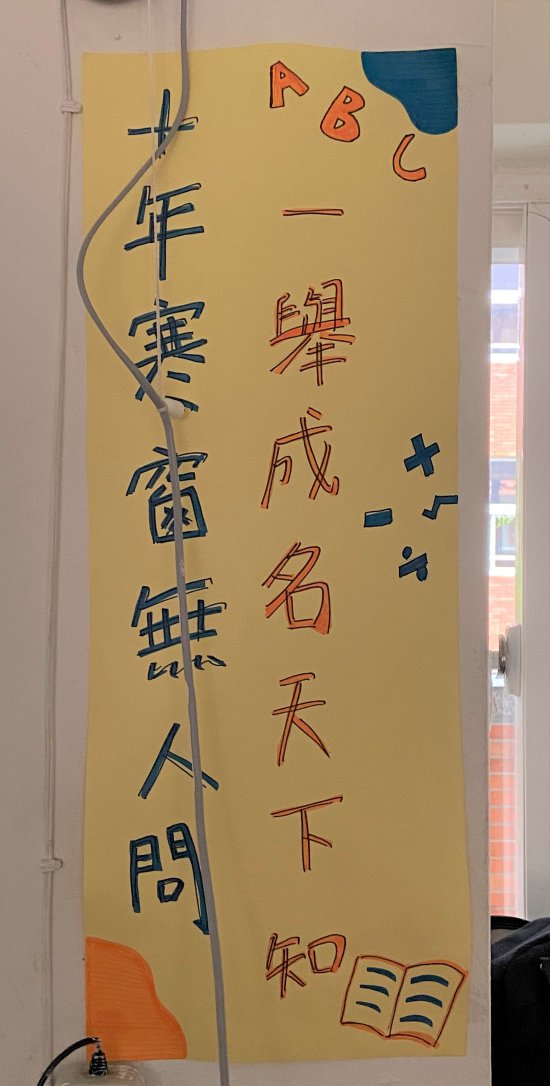 ABC
十年寒窗無人問
一舉成名天下知